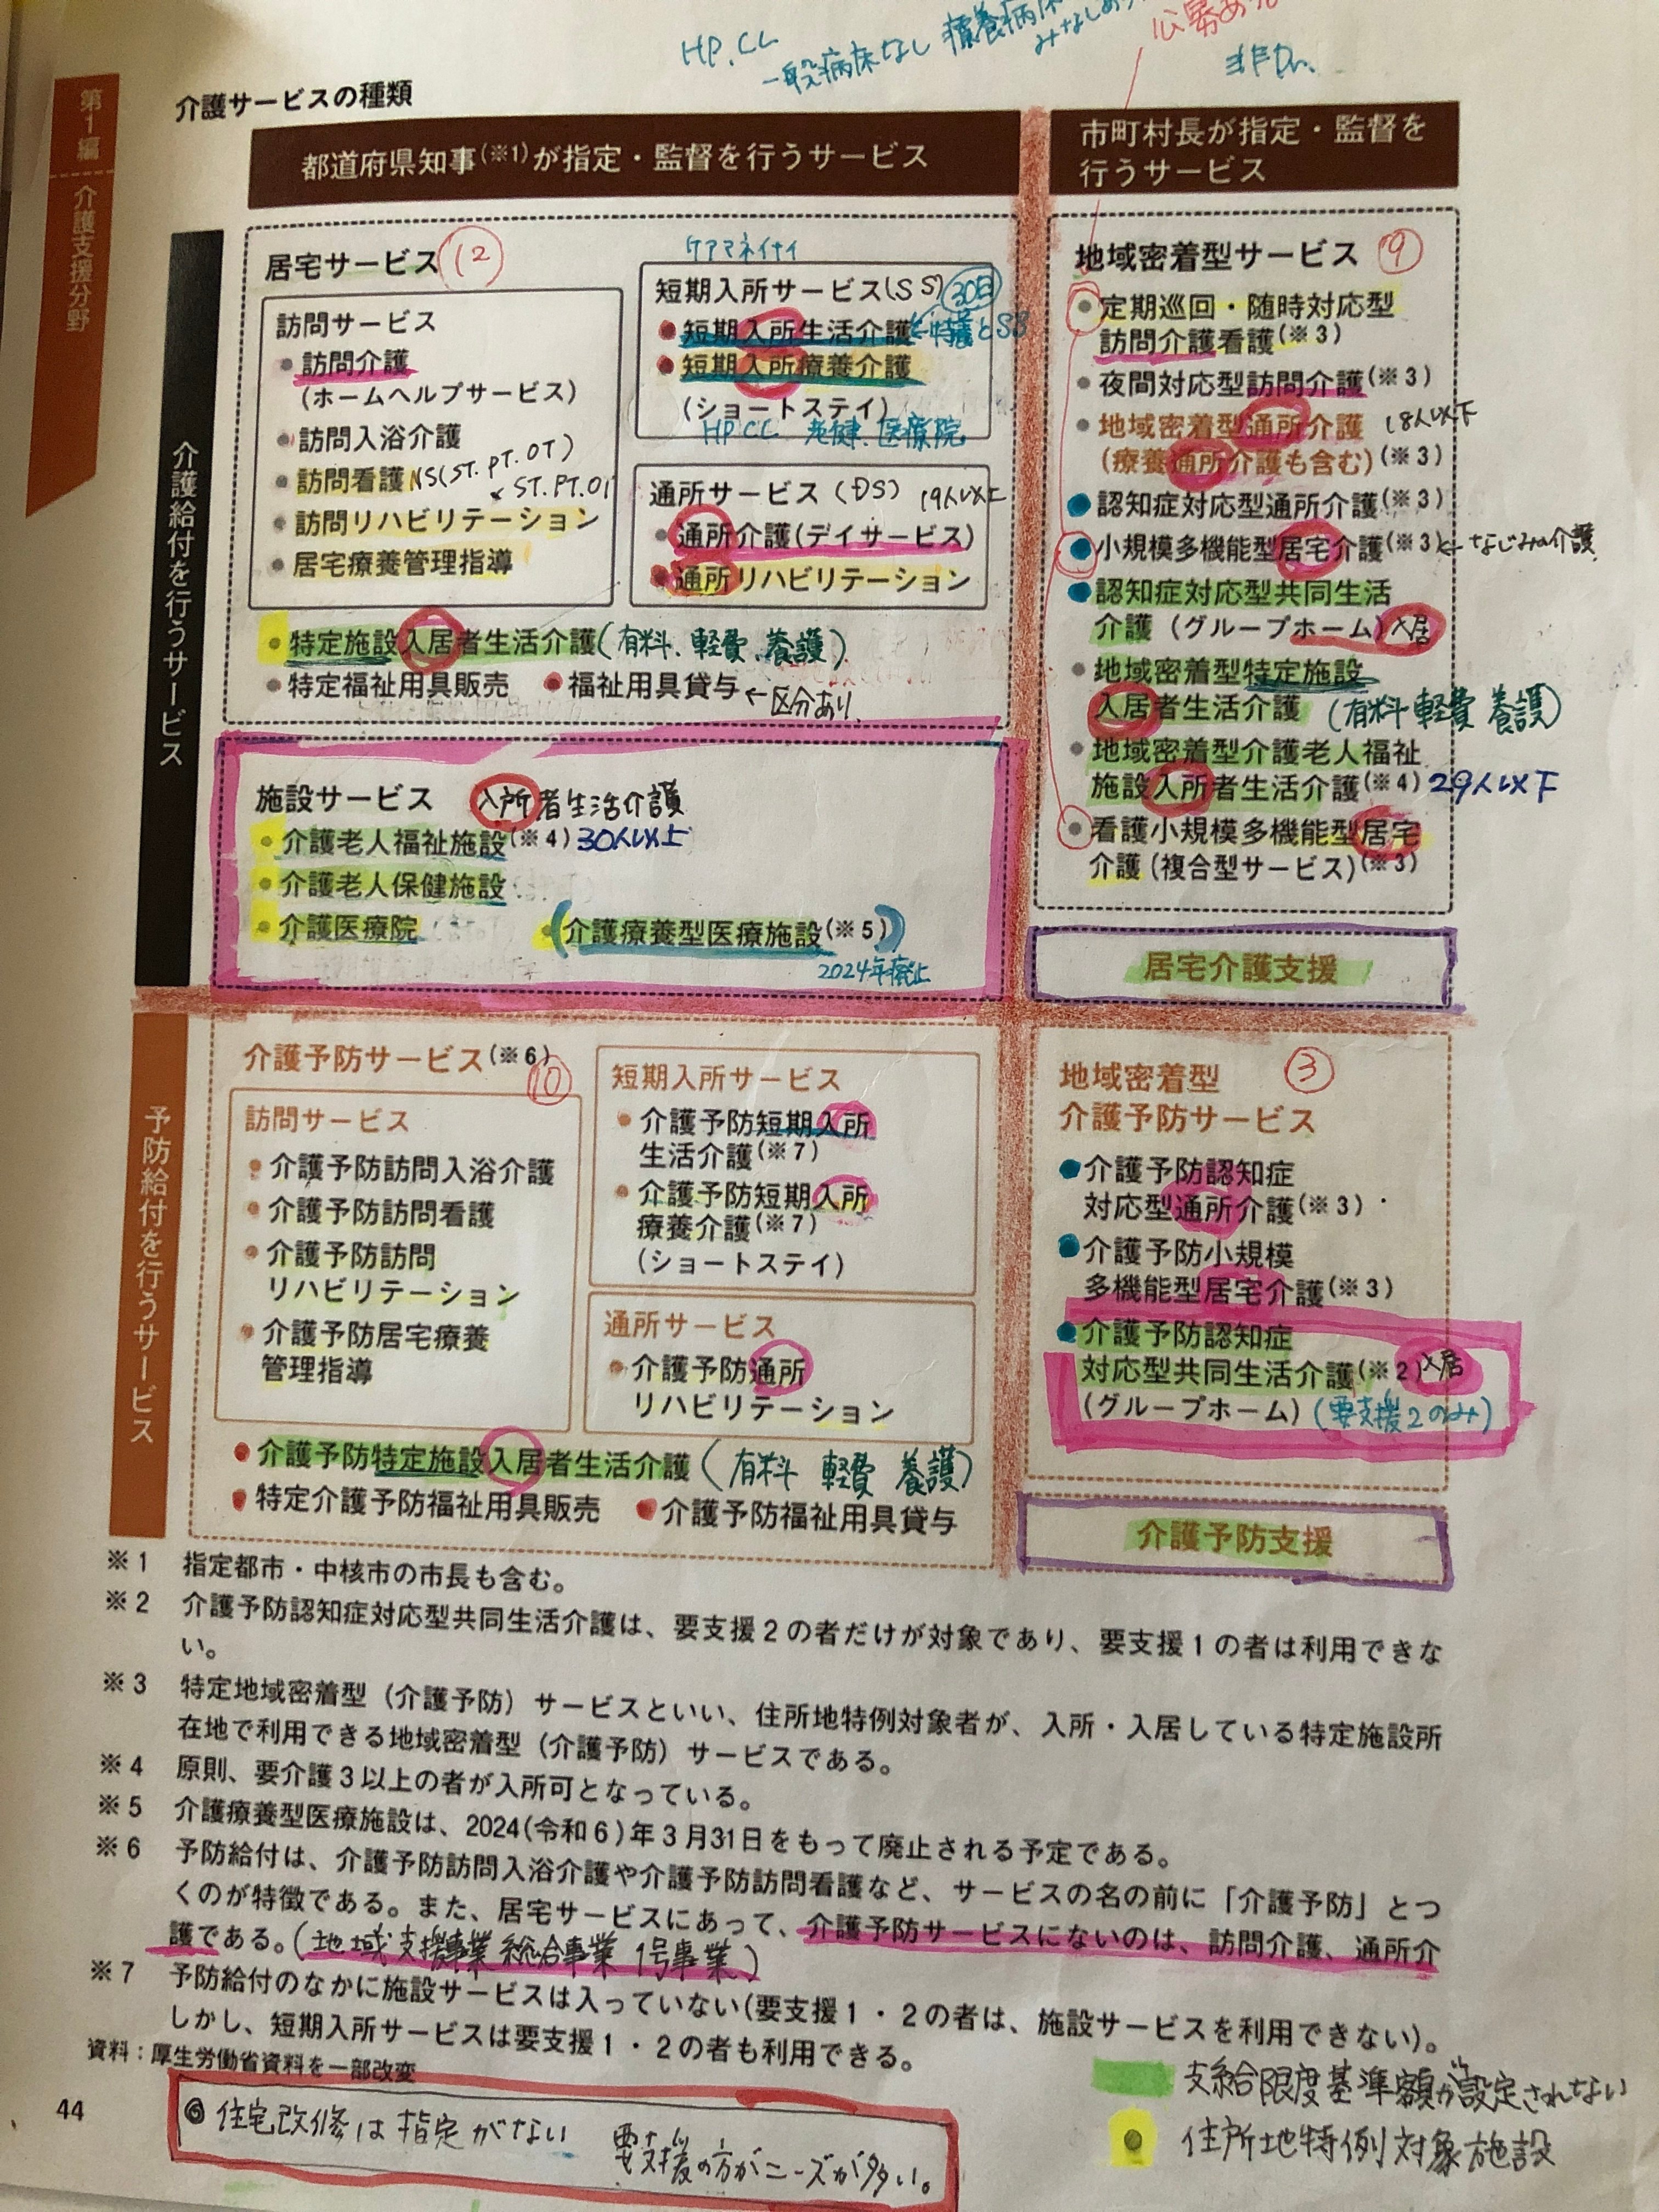 HP.CL
一般病床なし 療養病床
みなしあり
公募あり
非Dr.
第1編 介護支援分野
介護サービスの種類
都道府県知事(※1)が指定・監督を行うサービス
市町村長が指定・監督を
行うサービス
介護給付を行うサービス
居宅サービス ⑫
訪問サービス
●訪問介護
(ホームヘルプサービス)
●訪問入浴介護
●訪問看護 NS(ST.PT.OT)
ST.PT.OT
●訪問リハビリテーション
●居宅療養管理指導
ケアマネイナイ
短期入所サービス(SS) 30日
●短期入所生活介護 ←特養とSS
●短期入所療養介護
(ショートステイ)
HP CL 老健.医療院
通所サービス (DS) 19人以上
●通所介護(デイサービス)
●通所リハビリテーション
●特定施設入居者生活介護(有料.軽費.養護)
●特定福祉用具販売 ●福祉用具貸与 ←区分あり
施設サービス 入所者生活介護
●介護老人福祉施設(※4) 30人以上
●介護老人保健施設
●介護医療院 (介護療養型医療施設(※5))
2024年廃止
地域密着型サービス ⑨
●定期巡回・随時対応型
訪問介護看護(※3)
●夜間対応型訪問介護(※3)
●地域密着型通所介護 18人以下
(療養通所介護も含む)(※3)
●認知症対応型通所介護(※3)
●小規模多機能型居宅介護(※3) ←なじみの介護
●認知症対応型共同生活
介護(グループホーム) 入居
●地域密着型特定施設
入居者生活介護 (有料 軽費 養護)
●地域密着型介護老人福祉
施設入所者生活介護(※4) 29人以下
●看護小規模多機能型居宅
介護(複合型サービス)(※3)
居宅介護支援
予防給付を行うサービス
介護予防サービス(※6) ⑩
訪問サービス
●介護予防訪問入浴介護
●介護予防訪問看護
●介護予防訪問
リハビリテーション
●介護予防居宅療養
管理指導
短期入所サービス
●介護予防短期入所
生活介護(※7)
●介護予防短期入所
療養介護(※7)
(ショートステイ)
通所サービス
●介護予防通所
リハビリテーション
●介護予防特定施設入居者生活介護 (有料 軽費 養護)
●特定介護予防福祉用具販売 ●介護予防福祉用具貸与
地域密着型 ③
介護予防サービス
●介護予防認知症
対応型通所介護(※3)
●介護予防小規模
多機能型居宅介護(※3)
●介護予防認知症
対応型共同生活介護(※2) 入居
(グループホーム) (要支援2のみ)
介護予防支援
※1 指定都市・中核市の市長も含む。
※2 介護予防認知症対応型共同生活介護は、要支援2の者だけが対象であり、要支援1の者は利用できな
い。
※3 特定地域密着型(介護予防)サービスといい、住所地特例対象者が、入所・入居している特定施設所
在地で利用できる地域密着型(介護予防)サービスである。
※4 原則、要介護3以上の者が入所可となっている。
※5 介護療養型医療施設は、2024(令和6)年3月31日をもって廃止される予定である。
※6 予防給付は、介護予防訪問入浴介護や介護予防訪問看護など、サービスの名の前に「介護予防」とつ
くのが特徴である。また、居宅サービスにあって、介護予防サービスにないのは、訪問介護、通所介
護である。(地域支援事業 総合事業 1号事業)
※7 予防給付のなかに施設サービスは入っていない(要支援1・2の者は、施設サービスを利用できない)。
しかし、短期入所サービスは要支援1・2の者も利用できる。
資料：厚生労働省資料を一部改変
支給限度基準額が設定されない
44
◎住宅改修は指定がない 要支援の方がニーズが多い。
住所地特例対象施設